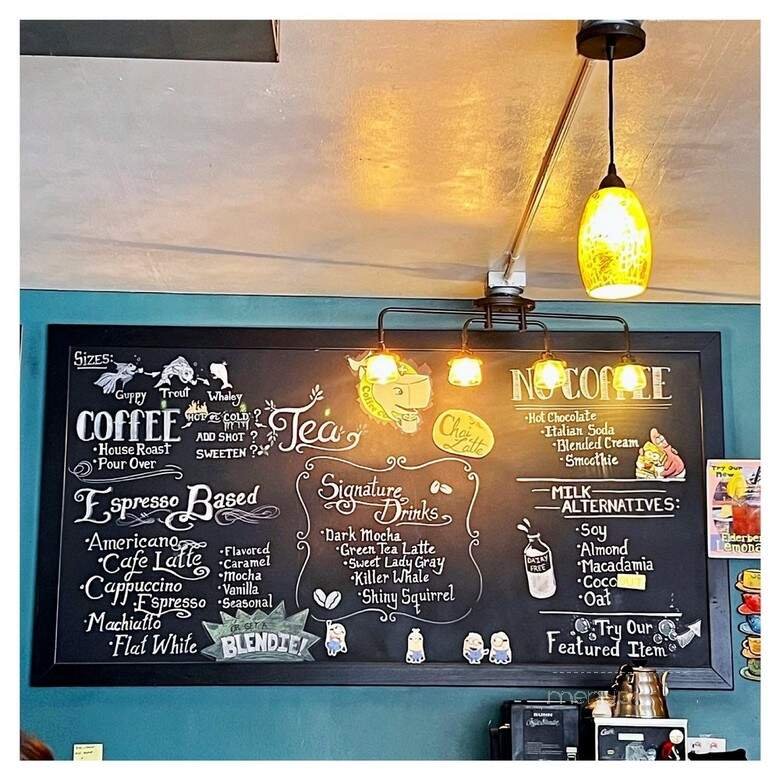 SIZES:
Guppy Trout Whaley
COFFEE
•House Roast
•Pour Over
HOT or COLD?
ADD SHOT?
SWEETEN?
Tea
Chai
Latte
NO COFFEE
•Hot Chocolate
•Italian Soda
•Blended Cream
•Smoothie
Espresso Based
•Americano
•Cafe Latte
•Cappuccino
•Espresso
•Machiatto
•Flat White
•Flavored
•Caramel
•Mocha
•Vanilla
•Seasonal
OR GET A
BLENDIE!
Signature
Drinks
•Dark Mocha
•Green Tea Latte
•Sweet Lady Gray
•Killer Whale
•Shiny Squirrel
MILK
ALTERNATIVES:
DAIRY
FREE
•Soy
•Almond
•Macadamia
•Coco OUT
•Oat
•Try Our
Featured Item
TRY OUR
NEW
Elderber
Lemona
BUNN